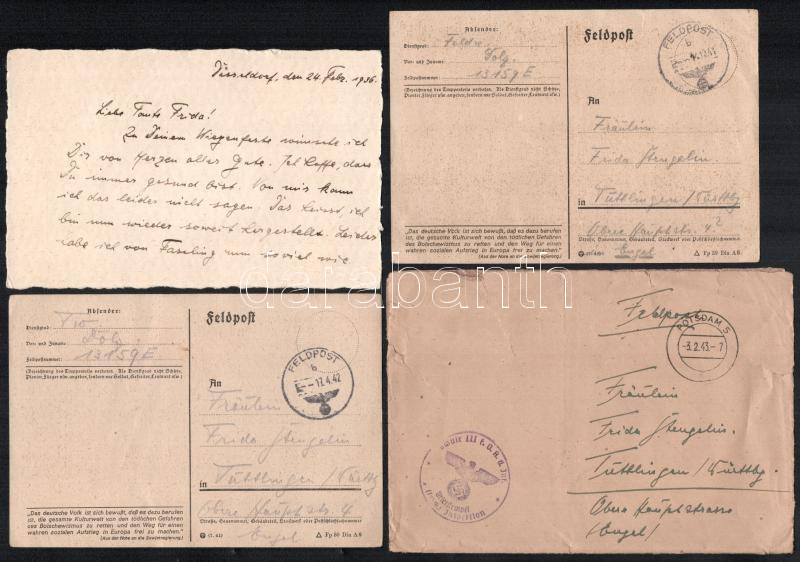 Düsseldorf, den 24. Febr. 1936.
Liebe Tante Frida!
Zu Deinem Wiegenfeste wünsche ich
Dir von Herzen alles Gute. Ich hoffe, dass
Du immer gesund bist. Von mir kann
ich das leider nicht sagen. Das heisst, ich
bin nun wieder soweit hergestellt. Leider
habe ich von Fasching nun so viel wie
Absender:
Feldpost
Dienstgrad:
Vor- und Zuname:
Feldpostnummer: 13159E
(Bezeichnung des Truppenteils verboten. Als Dienstgrad nicht Schütze,
Pionier, Flieger usw. angeben, sondern nur Soldat, Gefreiter, Leutnant usw.)
FELDPOST
b
An
Fräulein
Frida Stengelin.
in Tuttlingen/Württbg
Obere Hauptstr. 4?
Straße, Hausnummer, Gebäudeteil, Stockwert oder Postschließfachnummer
Engel
„Das deutsche Volk ist sich bewußt, daß es dazu berufen
ist, die gesamte Kulturwelt von den tödlichen Gefahren
des Bolschewizmus zu retten und den Weg für einen
wahren sozialen Aufstieg in Europa frei zu machen."
(Aus der Note an die Sowjetregierung.)
△ Fp 59 Din A 6
Absender:
Feldpost
Dienstgrad:
Vor- und Zuname:
Feldpostnummer: 13159E
(Bezeichnung des Truppenteils verboten. Als Dienstgrad nicht Schütze,
Pionier, Flieger usw. angeben, sondern nur Soldat, Gefreiter, Leutnant usw.)
FELDPOST
b
17.4.42
An
Fräulein
Frida Stengelin
in Tuttlingen/Württbg
Obere Hauptstr. 4
Straße, Hausnummer, Gebäudeteil, Stockwert oder Postschließfachnummer
Engel
„Das deutsche Volk ist sich bewußt, daß es dazu berufen
ist, die gesamte Kulturwelt von den tödlichen Gefahren
des Bolschewizmus zu retten und den Weg für einen
wahren sozialen Aufstieg in Europa frei zu machen."
(Aus der Note an die Sowjetregierung.)
△ Fp 59 Din A 6
Feldpost
POTSDAM 5
-3.2.43.-7
Fräulein
Frida Stengelin.
Tuttlingen/Württbg.
Obere Hauptstrasse
(Engel)
darabanth